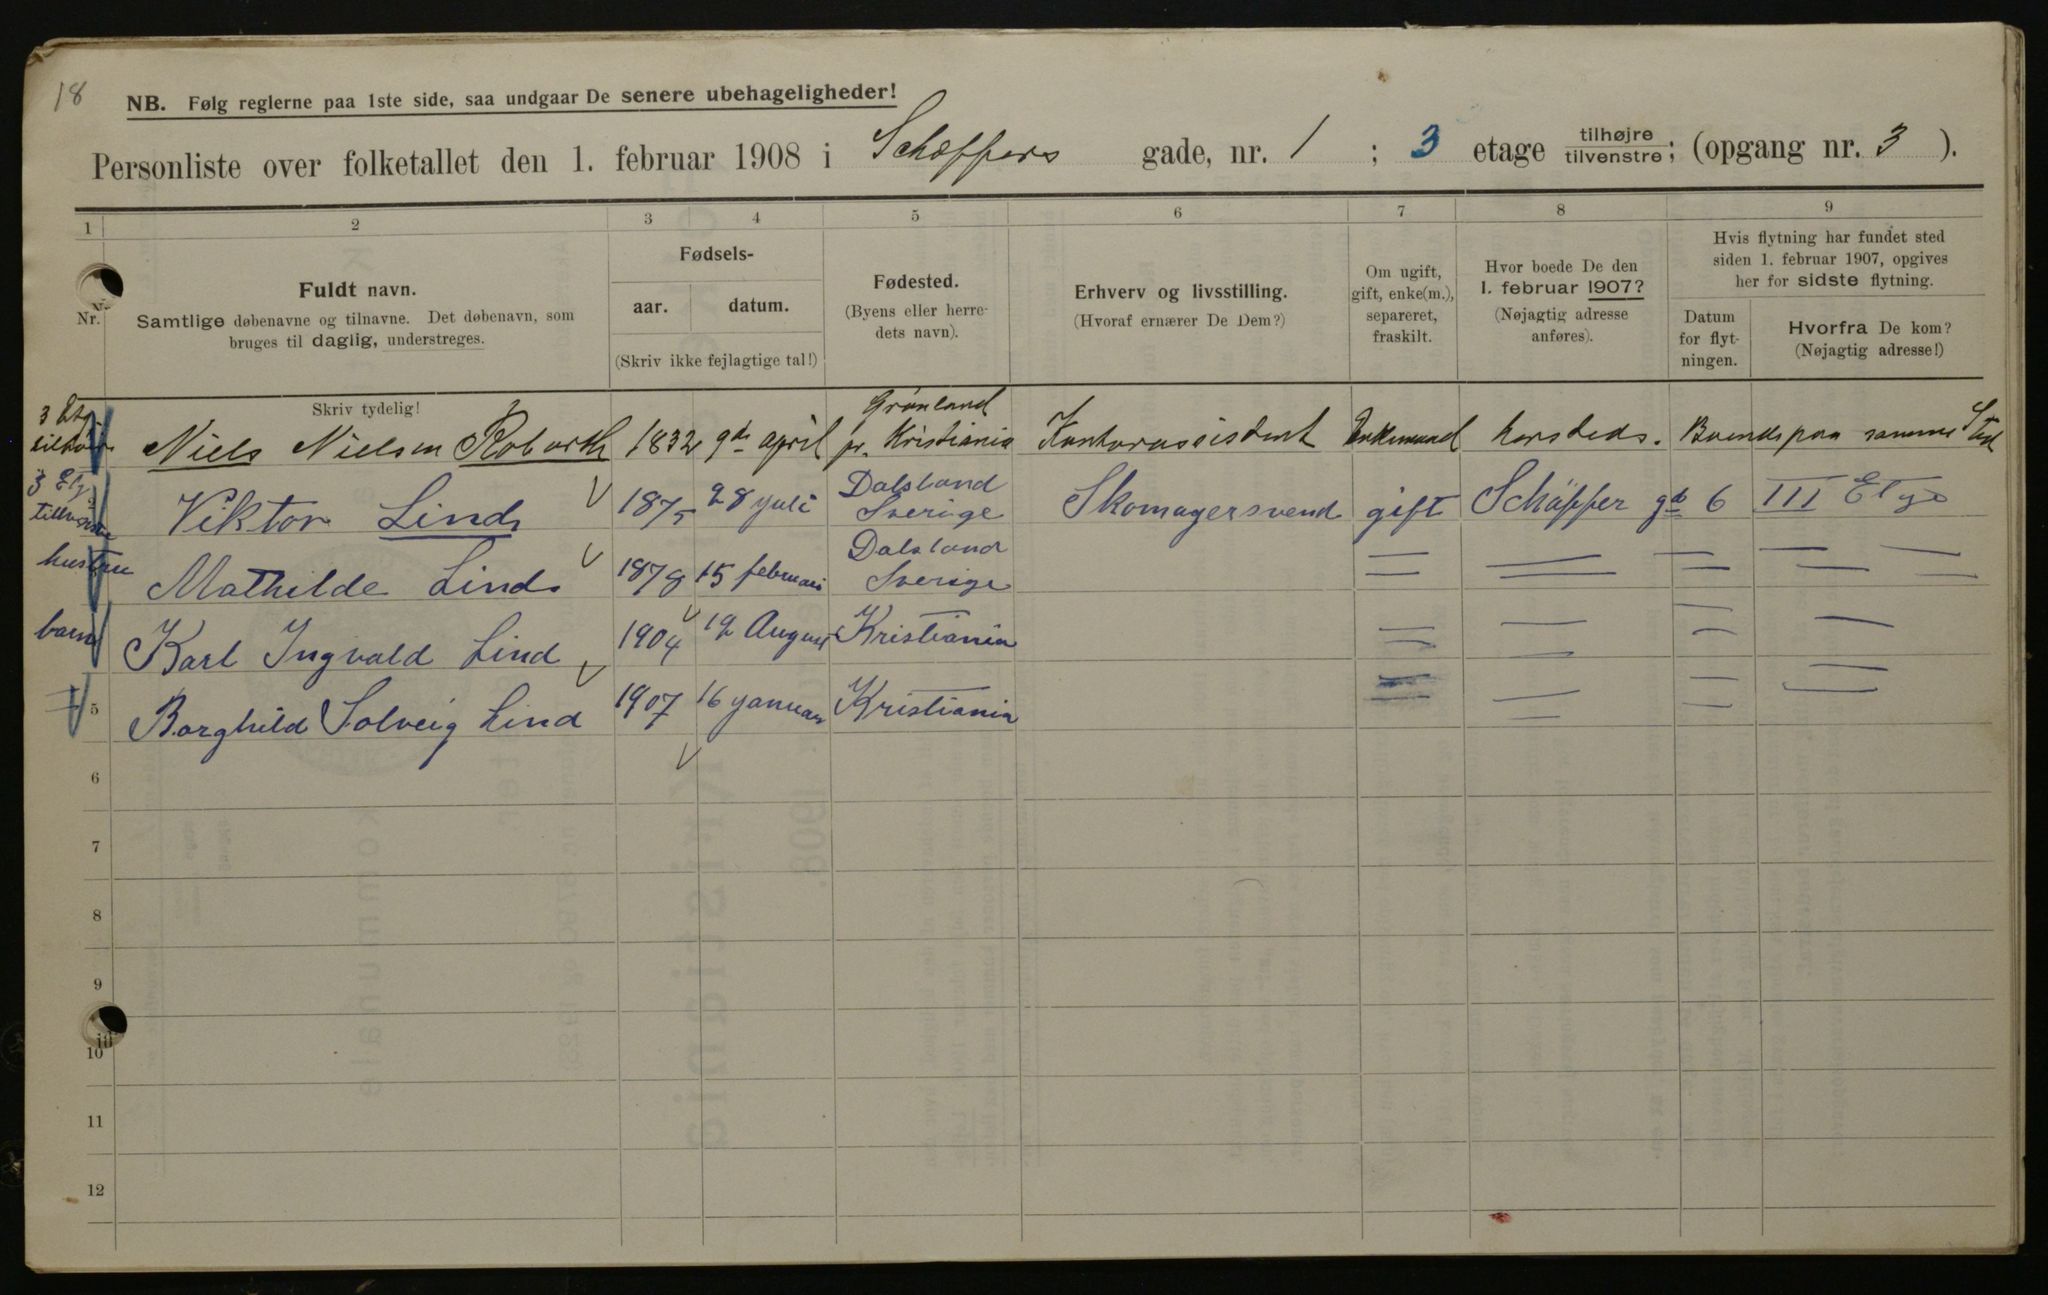 18
NB. Følg reglerne paa 1ste side, saa undgaar De senere ubehageligheder!
Personliste over folketallet den 1. februar 1908 i Schæffers gade, nr. 1 ; 3 etage tilhøjre tilvenstre; (opgang nr. 3 ).
1 2 3 4 5 6 7 8 9
Nr.
Fuldt navn.
Samtlige døbenavne og tilnavne. Det døbenavn, som
bruges til daglig, understreges.
Skriv tydelig!
Fødsels-
aar. datum.
(Skriv ikke fejlagtige tal!)
Fødested.
(Byens eller herre-
dets navn).
Erhverv og livsstilling.
(Hvoraf ernærer De Dem?)
Om ugift,
gift, enke(m.),
separeret,
fraskilt.
Hvor boede De den
1. februar 1907?
(Nøjagtig adresse
anføres).
Hvis flytning har fundet sted
siden 1. februar 1907, opgives
her for sidste flytning.
Datum
for flyt-
ningen.
Hvorfra De kom?
(Nøjagtig adresse!)
3 Etg. tilhøire Niels Nielsen Robarth 1832 9de april Grønland pr. Kristiania Kontorassistent Enkemand hersteds. Boende paa samme Sted
3 Etg tillvenstre Viktor Lind 1875 28 yuli Dalsland Sverige Skomagersvend gift Schäffer gd 6 III Etge
hustru Mathilde Lind 1878 15 februari Dalsland Sverige = = = = =
barn Karl Ingvald Lind 1904 19 August Kristiania = = = =
= 5 Borghild Solveig Lind 1907 16 yanuar Kristiania = = = =
6
7
8
9
10
11
12